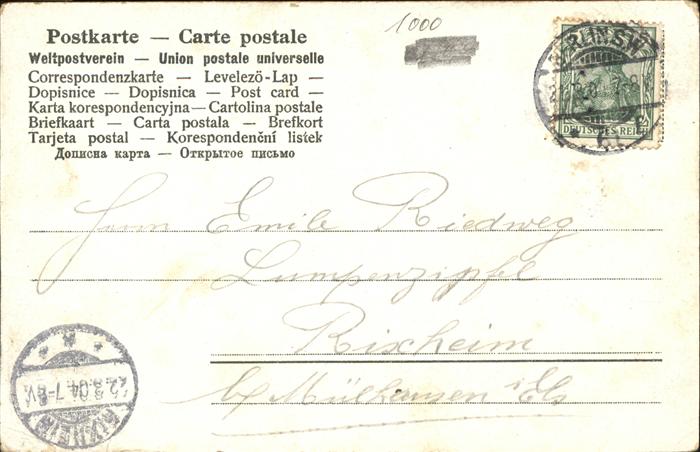 1000
Postkarte — Carte postale
Weltpostverein — Union postale universelle
Correspondenzkarte — Levelező-Lap —
Dopisnice — Dopisnica — Post card —
Karta korespondencyjna — Cartolina postale
Briefkaart — Carta postala — Brefkort
Tarjeta postal — Korespondenční lístek
Дописна карта — Открытое письмо
BERLIN SW
DEUTSCHES REICH
Herrn Emile Riedweg
Lumpenzipfel
Rixheim
b/ Mülhausen i/Els
22.3.04.7-8V.
RIXHEIM